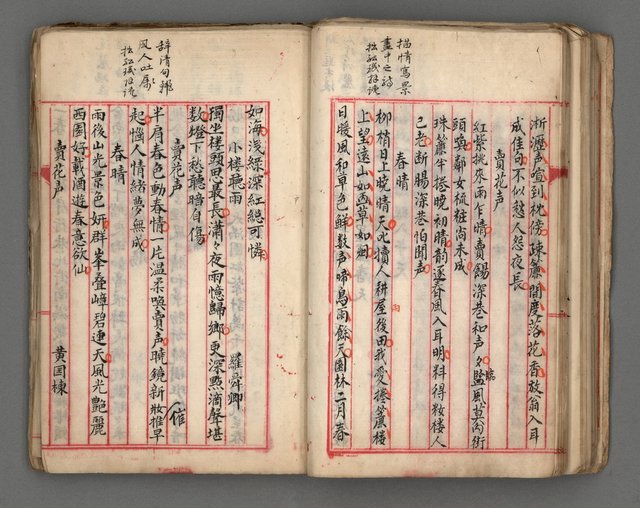 描情寫景
畫中之詩
淅瀝声喧到枕傍疎簾間度落花香放翁入耳
成佳句不似愁人怨夜長
賣花声
紅紫挑來雨乍晴賣餳深巷和声々
頭鬻鄰女梳粧尚未成
珠簾半捲晚初晴韵逐春風入耳明料得粧樓人
已老断腸深巷怕聞声
春晴
柳梢日上晚晴天叱犢人耕屋後田我愛捲簾樓
上望遠山如画草如烟
日暖風和草色鮮数声啼鳥雨餘天園林二月春
辞清句雅
風人吐属
如海浅綠深紅総可憐
小楼聴雨
羅舜卿
獨坐楼頭思最長瀟々夜雨憶歸鄉更深點滴聲堪
数燈下愁聽暗自傷
賣花声
半肩春色動春情一片温柔喚賣声曉鏡新妝推早
起惱人情緒夢無成
催
春晴
雨後山光景色妍群峯叠嶂碧連天風光艷麗
西園好載酒遊春意欲仙
賣花声
黄国棟